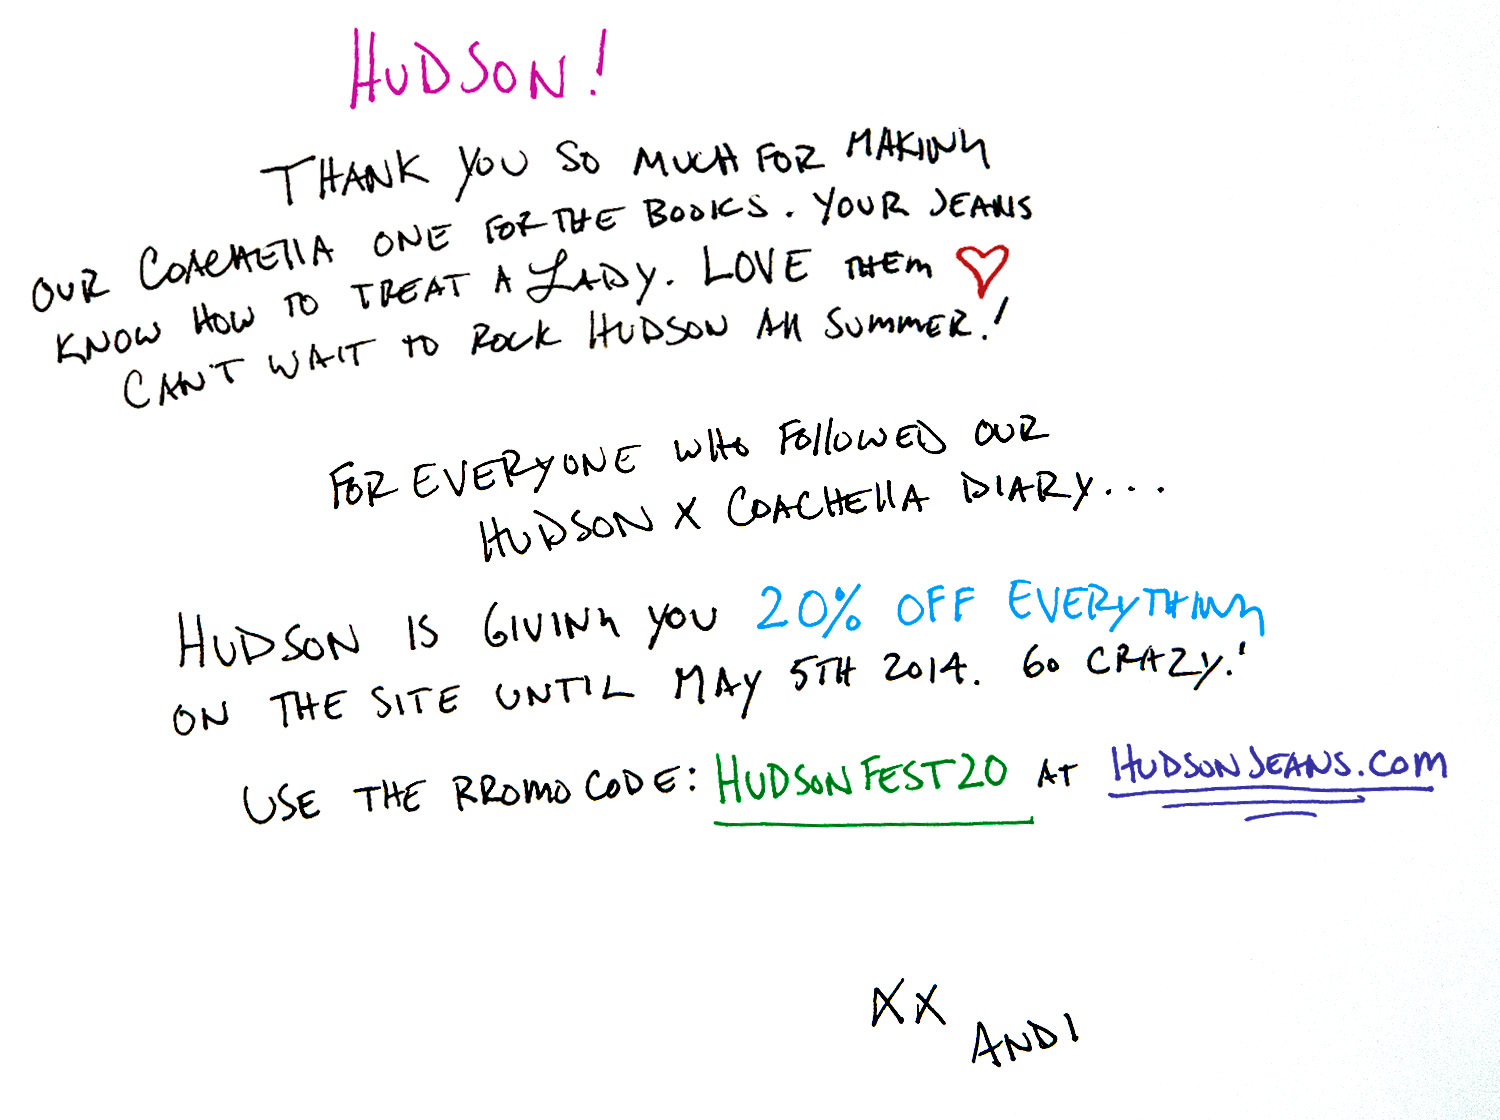 HUDSON!
THANK YOU SO MUCH FOR MAKING
OUR COACHELLA ONE FOR THE BOOKS. YOUR JEANS
KNOW HOW TO TREAT A LADY. LOVE THEM ♡
CAN'T WAIT TO ROCK HUDSON ALL SUMMER!
FOR EVERYONE WHO FOLLOWED OUR
HUDSON X COACHELLA DIARY...
HUDSON IS GIVING YOU 20% OFF EVERYTHING
ON THE SITE UNTIL MAY 5TH 2014. GO CRAZY!
USE THE PROMO CODE: HUDSONFEST20 AT HUDSONJEANS.COM
XX
ANDI